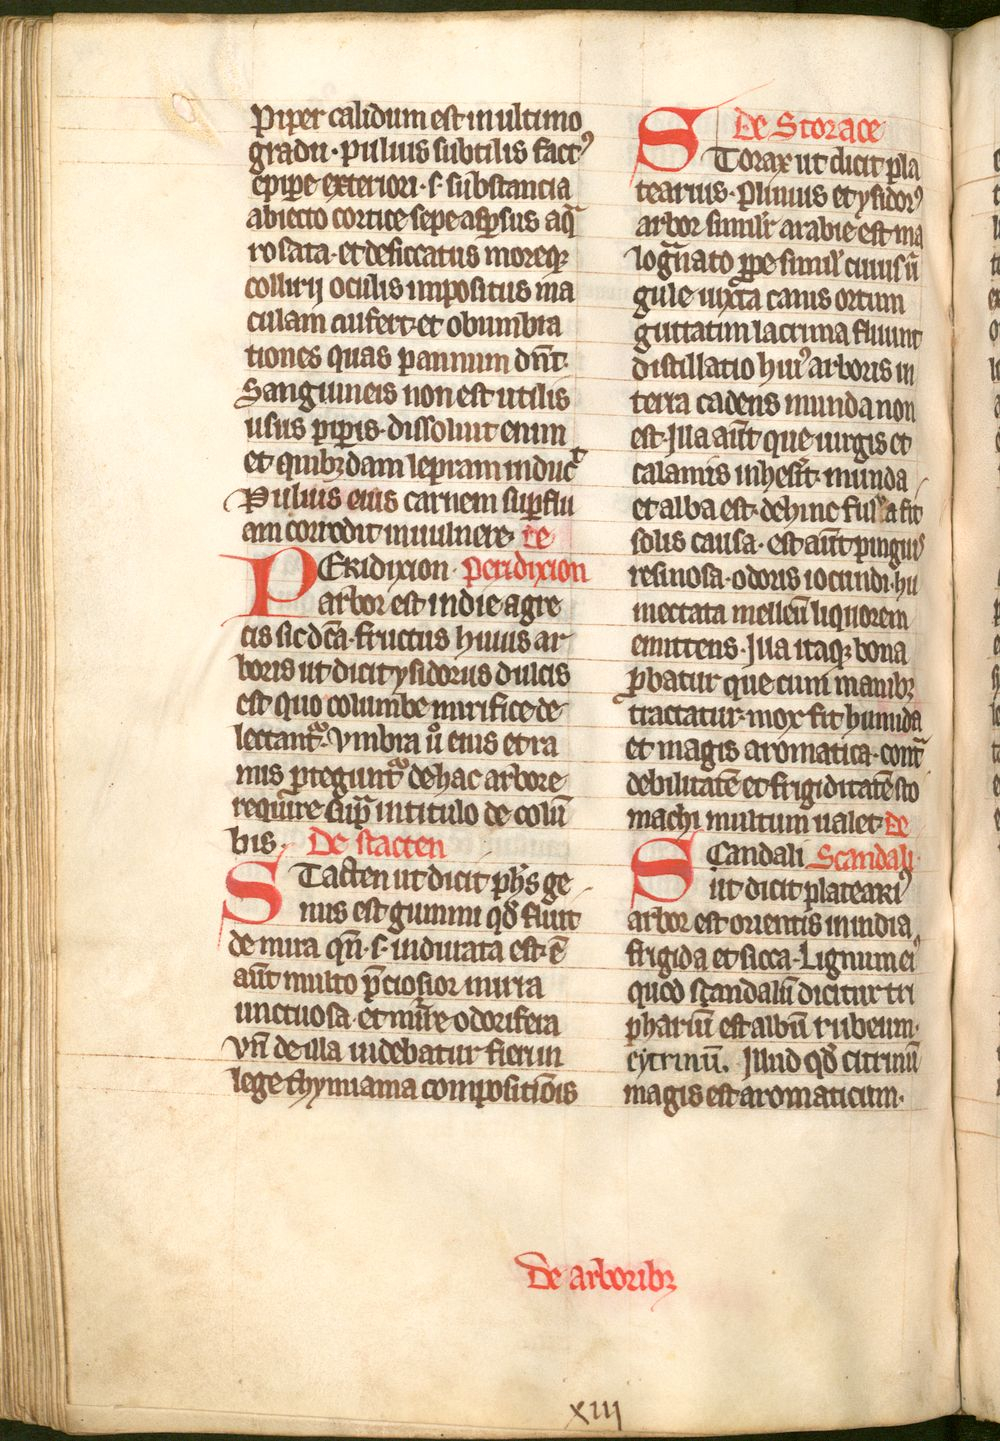 Piper calidum est in ultimo
gradu · Puluis subtilis fact9
epipe exteriori · s · substantia
abiecto cortice sepe asp̱sus aq̄
rosata · et desiccatus moreqꝫ
collirij oculis impositus ma
culam aufert · et obumbra
tiones quas pannum dn̄t ·
Sanguineis non est utilis
usus pip̱is · dissoluit enim
et quibꝫdam lepram inducͭ
Puluis eius carnem sup̱flu
am corrodit in uulnere · De
PEridixion · Peridixion
arbor est in die agre
cis sic dc̄a · fructus huius ar
boris ut dicit ysidorus dulcis
est quo columbe mirifice de
lectant᷑ · Vmbra u̇ eius et ra
mis ꝓtegunt᷑ de hac arbore
require sup̄ in titulo de colū
bis · De stacten
STacten ut dicit ph̄s ge
nus est gummi qd̄ fluit
de mira qn̄ · s · indurata est · ē
aūt multo p̄ciosior mirra
unctuosa · et mire odorifera
Vn̄ de illa uidebatur fieri in
lege thymiama compositiōis
De Storace
STorax ut dicit pla
tearius · plinius et ysidor9
arbor simil̄r arabie est ma
logn̄ato ꝓpe simil̄ cuius ū
gule iuxta canis ortum
guttatim lacrima fluunt
distillatio hui9 arboris in
terra cadens munda non
est · Illa aūt que uirgis et
calamis inheser̄t · munda
et alba est · dehinc fulua fit
solis causa · est aūt pinguis
resinosa · odoris iocundi · hu
mectata melleū liquorem
emittens · Illa itaqꝫ bona
ꝓbatur que cum manibꝫ
tractatur · mox fit humida
et magis aromatica · contᷓ
debilitatē et frigiditatē sto
machi multum ualet · De
SCandali Scandali ·
ut dicit plateari9
arbor est orientis in india
frigida et sicca · Lignum ei9
quod scandalū dicitur tri
phariū est albū rubeum ·
cytrinū · Illud qd̄ citrinū
magis est aromaticum ·
De arboribꝫ
XIII